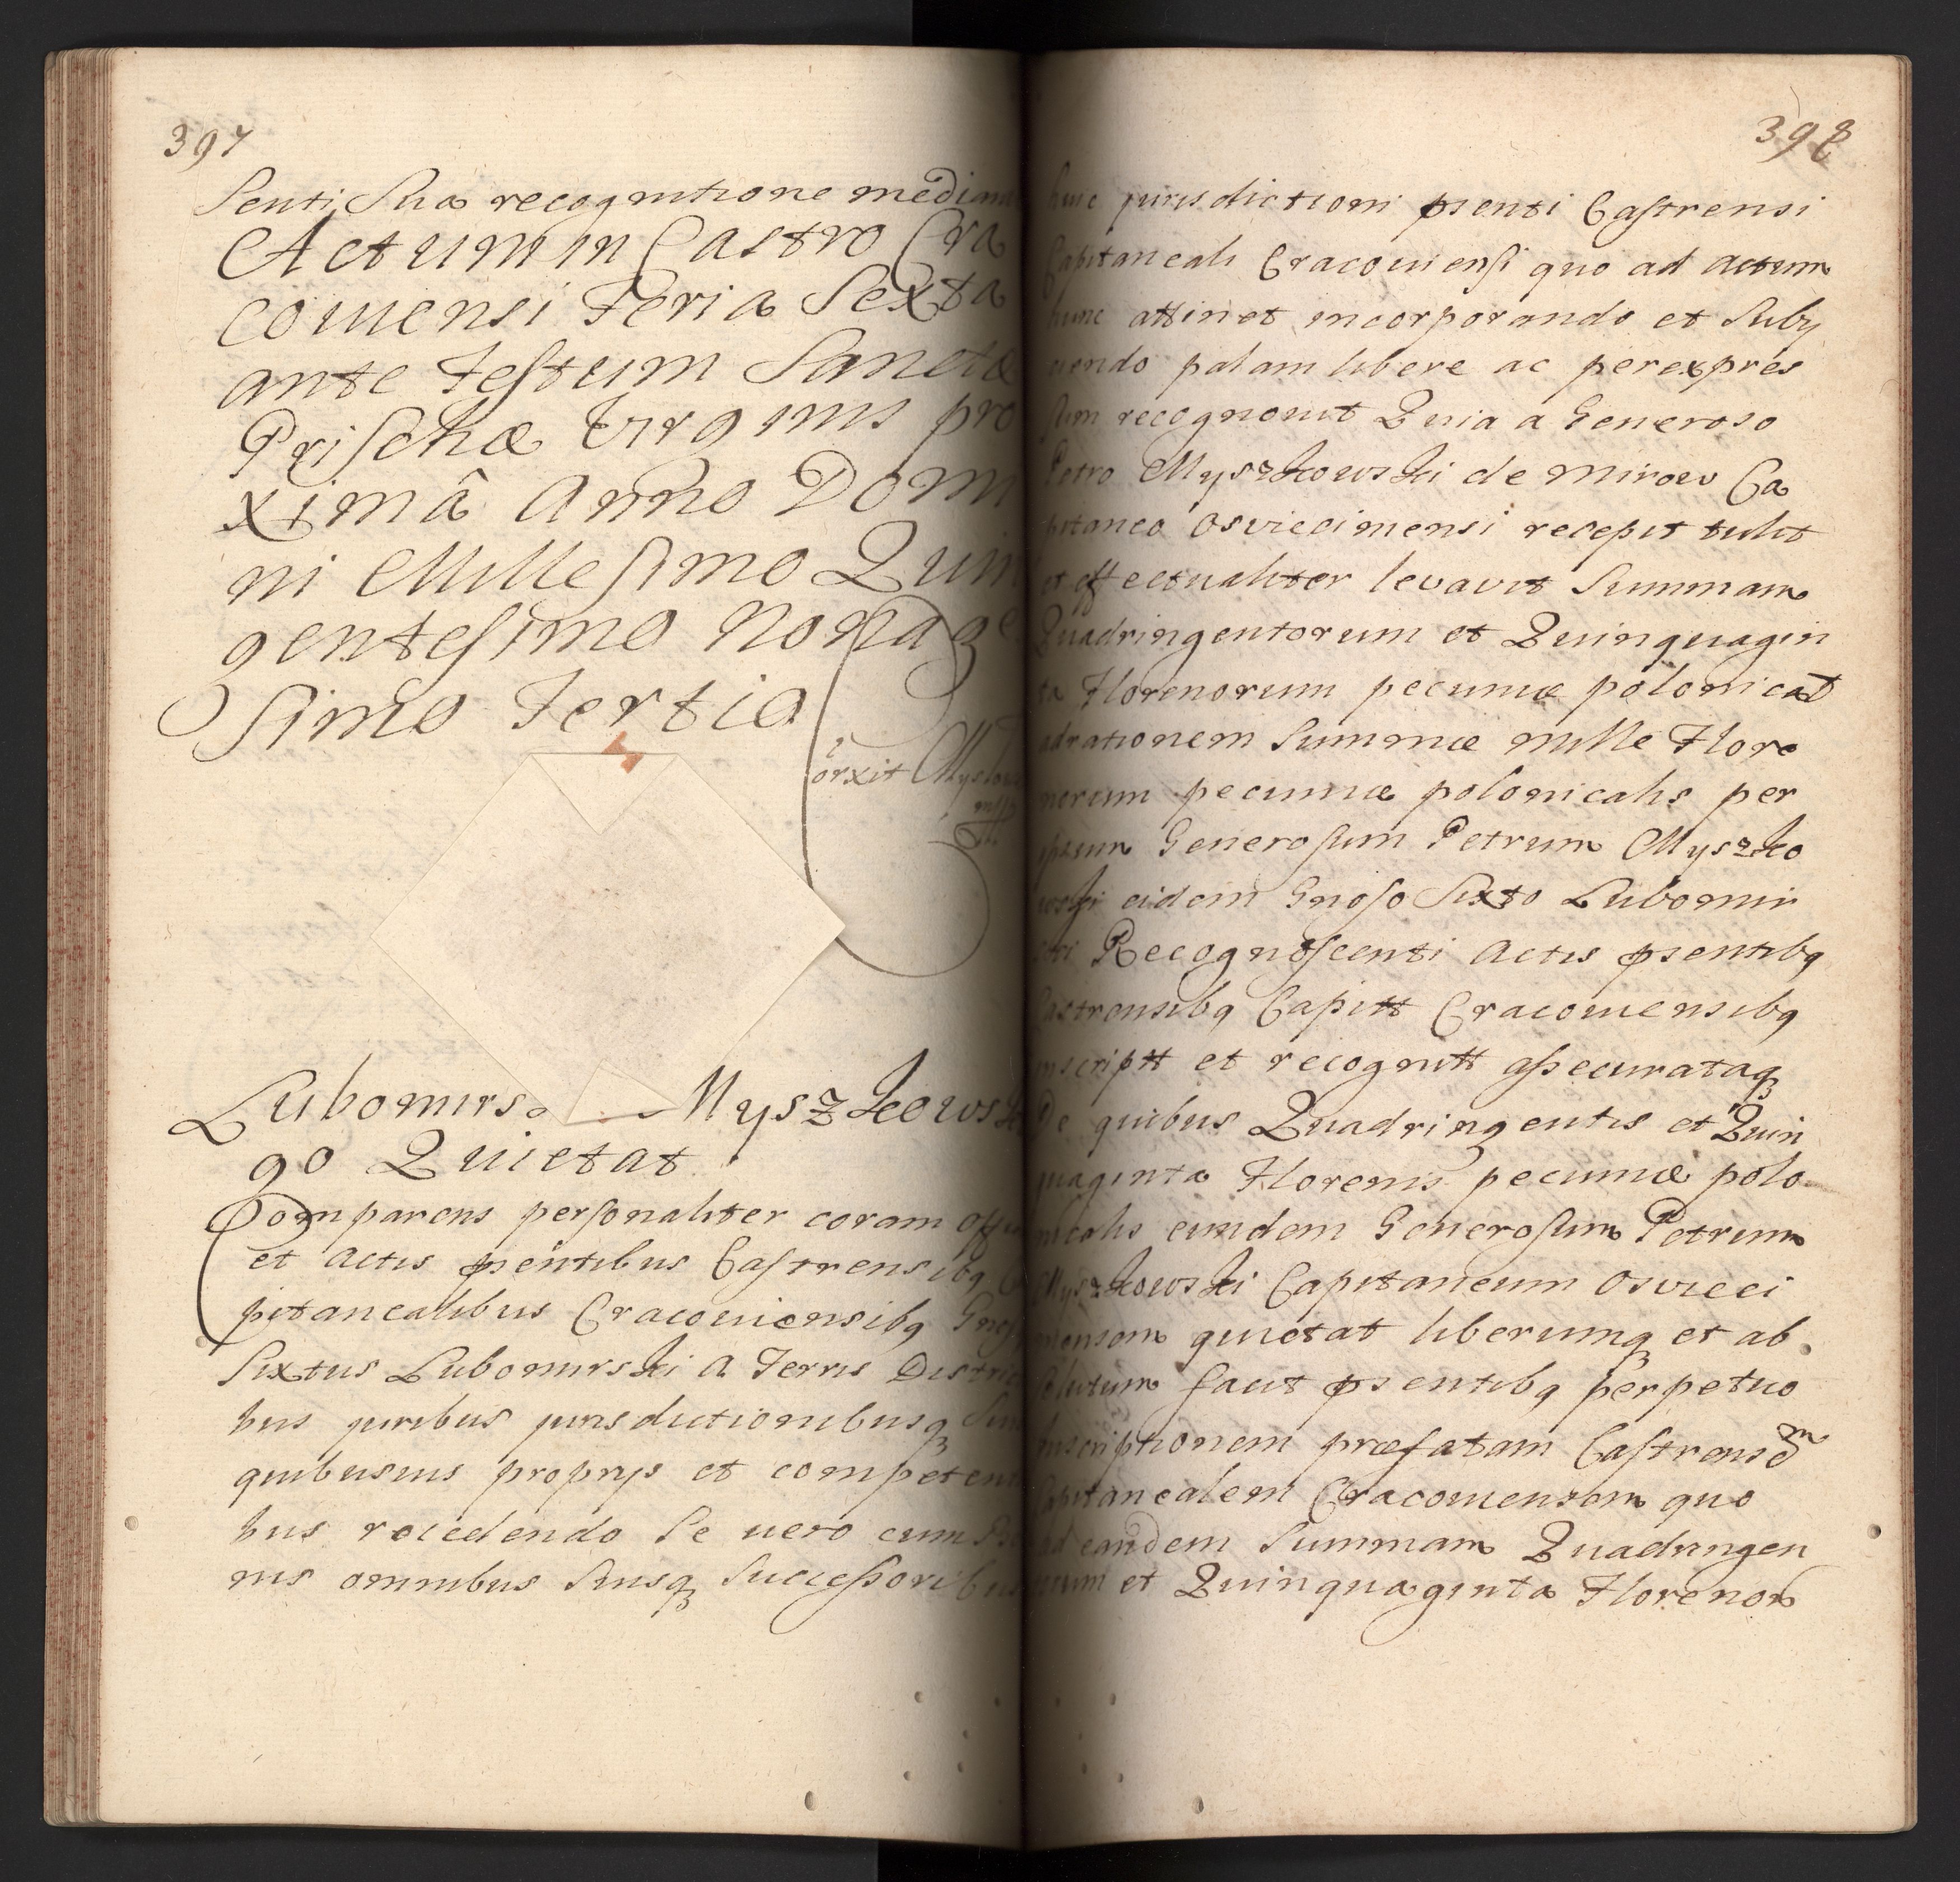 397
senti Sua recognitione median
Actum in Castro Cra
coviensi Feria Sexta
ante Festum Sanctæ
Prischæ Virginis pro
ximâ Anno Domi
ni Millesimo Quin
gentesimo Nonage
simo Tertio
orxit
Lubomirs Myszkows
go Quietat
Comparens personaliter coram
et Actis psentibus Castrensibq
pitanealibus Cracoviensibq
Sixtus Lubomirski A Terris Distric
bus juribus jurisdictionibusq
quibusvis proprijs et competen
bus recedendo Se vero cum
nis omnibus Suisq Successoribus
398
hinc jurisdictioni psenti Castrensi
Capitaneali Cracoviensi quo ad actum
hunc attinet incorporando et Subij
ciendo palam libere ac perexpres
sum recognovit Quia a Generoso
Petro Myszkowski de Mirow Ca
pitaneo Osviecimensi recepit tulit
et effectualiter levavit Summam
Quadringentorum et Quinquagin
ta Florenorum pecuniæ polonicat
adrationem Summæ mille Flore
norum pecuniæ polonicalis per
ipsum Generosum Petrum Myszko
wski eidem Gnoso Sixto Lubomir
ski Recognoscenti Actis psentibq
Castrensibq Capitt Cracoviensibq
inscriptt et recognitt assecurataq
De quibus Quadringentis et Quin
quaginta Florenis pecuniæ polo
nicalis eundem Generosum Petrum
Myszkowski Capitaneum Osvieci
mensem quietat liberumq et ab
solutum facit psentibq perpetuo
Inscriptionem præfatam Castrensem
Capitanealem Cracoviensem quo
ad eandem Summam Quadringen
torum et Quinquaginta Florenor